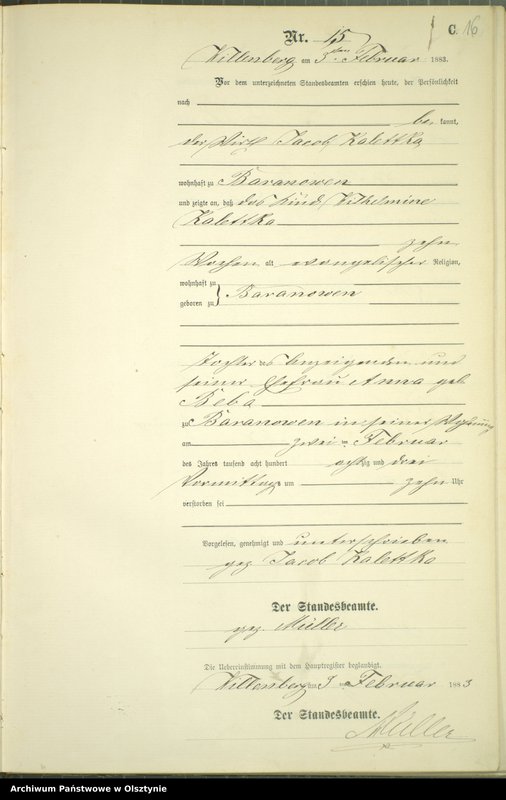 C. 16
Nr. 15
Willenberg am 3ten Februar 1883.
Vor dem unterzeichneten Standesbeamten erschien heute, der Persönlichkeit
nach
be kannt,
der Wirth Jacob Kalettka
wohnhaft zu Baranowen
und zeigte an, daß das Kind Wilhelmine
Kalettka
zehn
Wochen alt evangelischer Religion,
wohnhaft zu
geboren zu Baranowen
Tochter des Anzeigenden und
seiner Ehefrau Anna geb.
Beba
zu Baranowen in seiner Wohnung
am zwei ten Februar
des Jahres tausend acht hundert achtzig und drei
Vormittags um zehn Uhr
verstorben sei
Vorgelesen, genehmigt und unterschrieben
gez. Jacob Kalettka
Der Standesbeamte.
gez. Müller
Die Uebereinstimmung mit dem Hauptregister beglaubigt.
Willenberg am 3 ten Februar 1883
Der Standesbeamte.
Müller
Archiwum Państwowe w Olsztynie